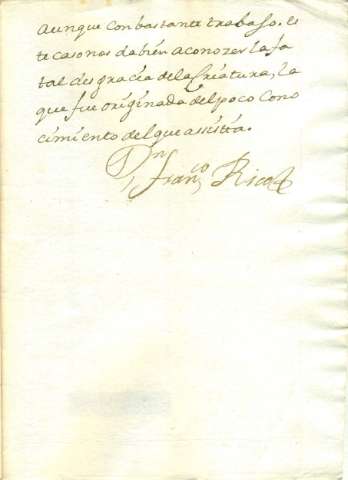 aunque con bastante trabaJo. es
te caso nos da bien a conozer la fa
tal desgracia de la Criatura, la
que fue originada del poco Cono
cimiento del que assistia.
Dn Franco Rico